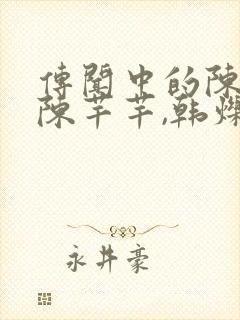 傳聞中的陳
陳芊芊,韩烁
永井豪